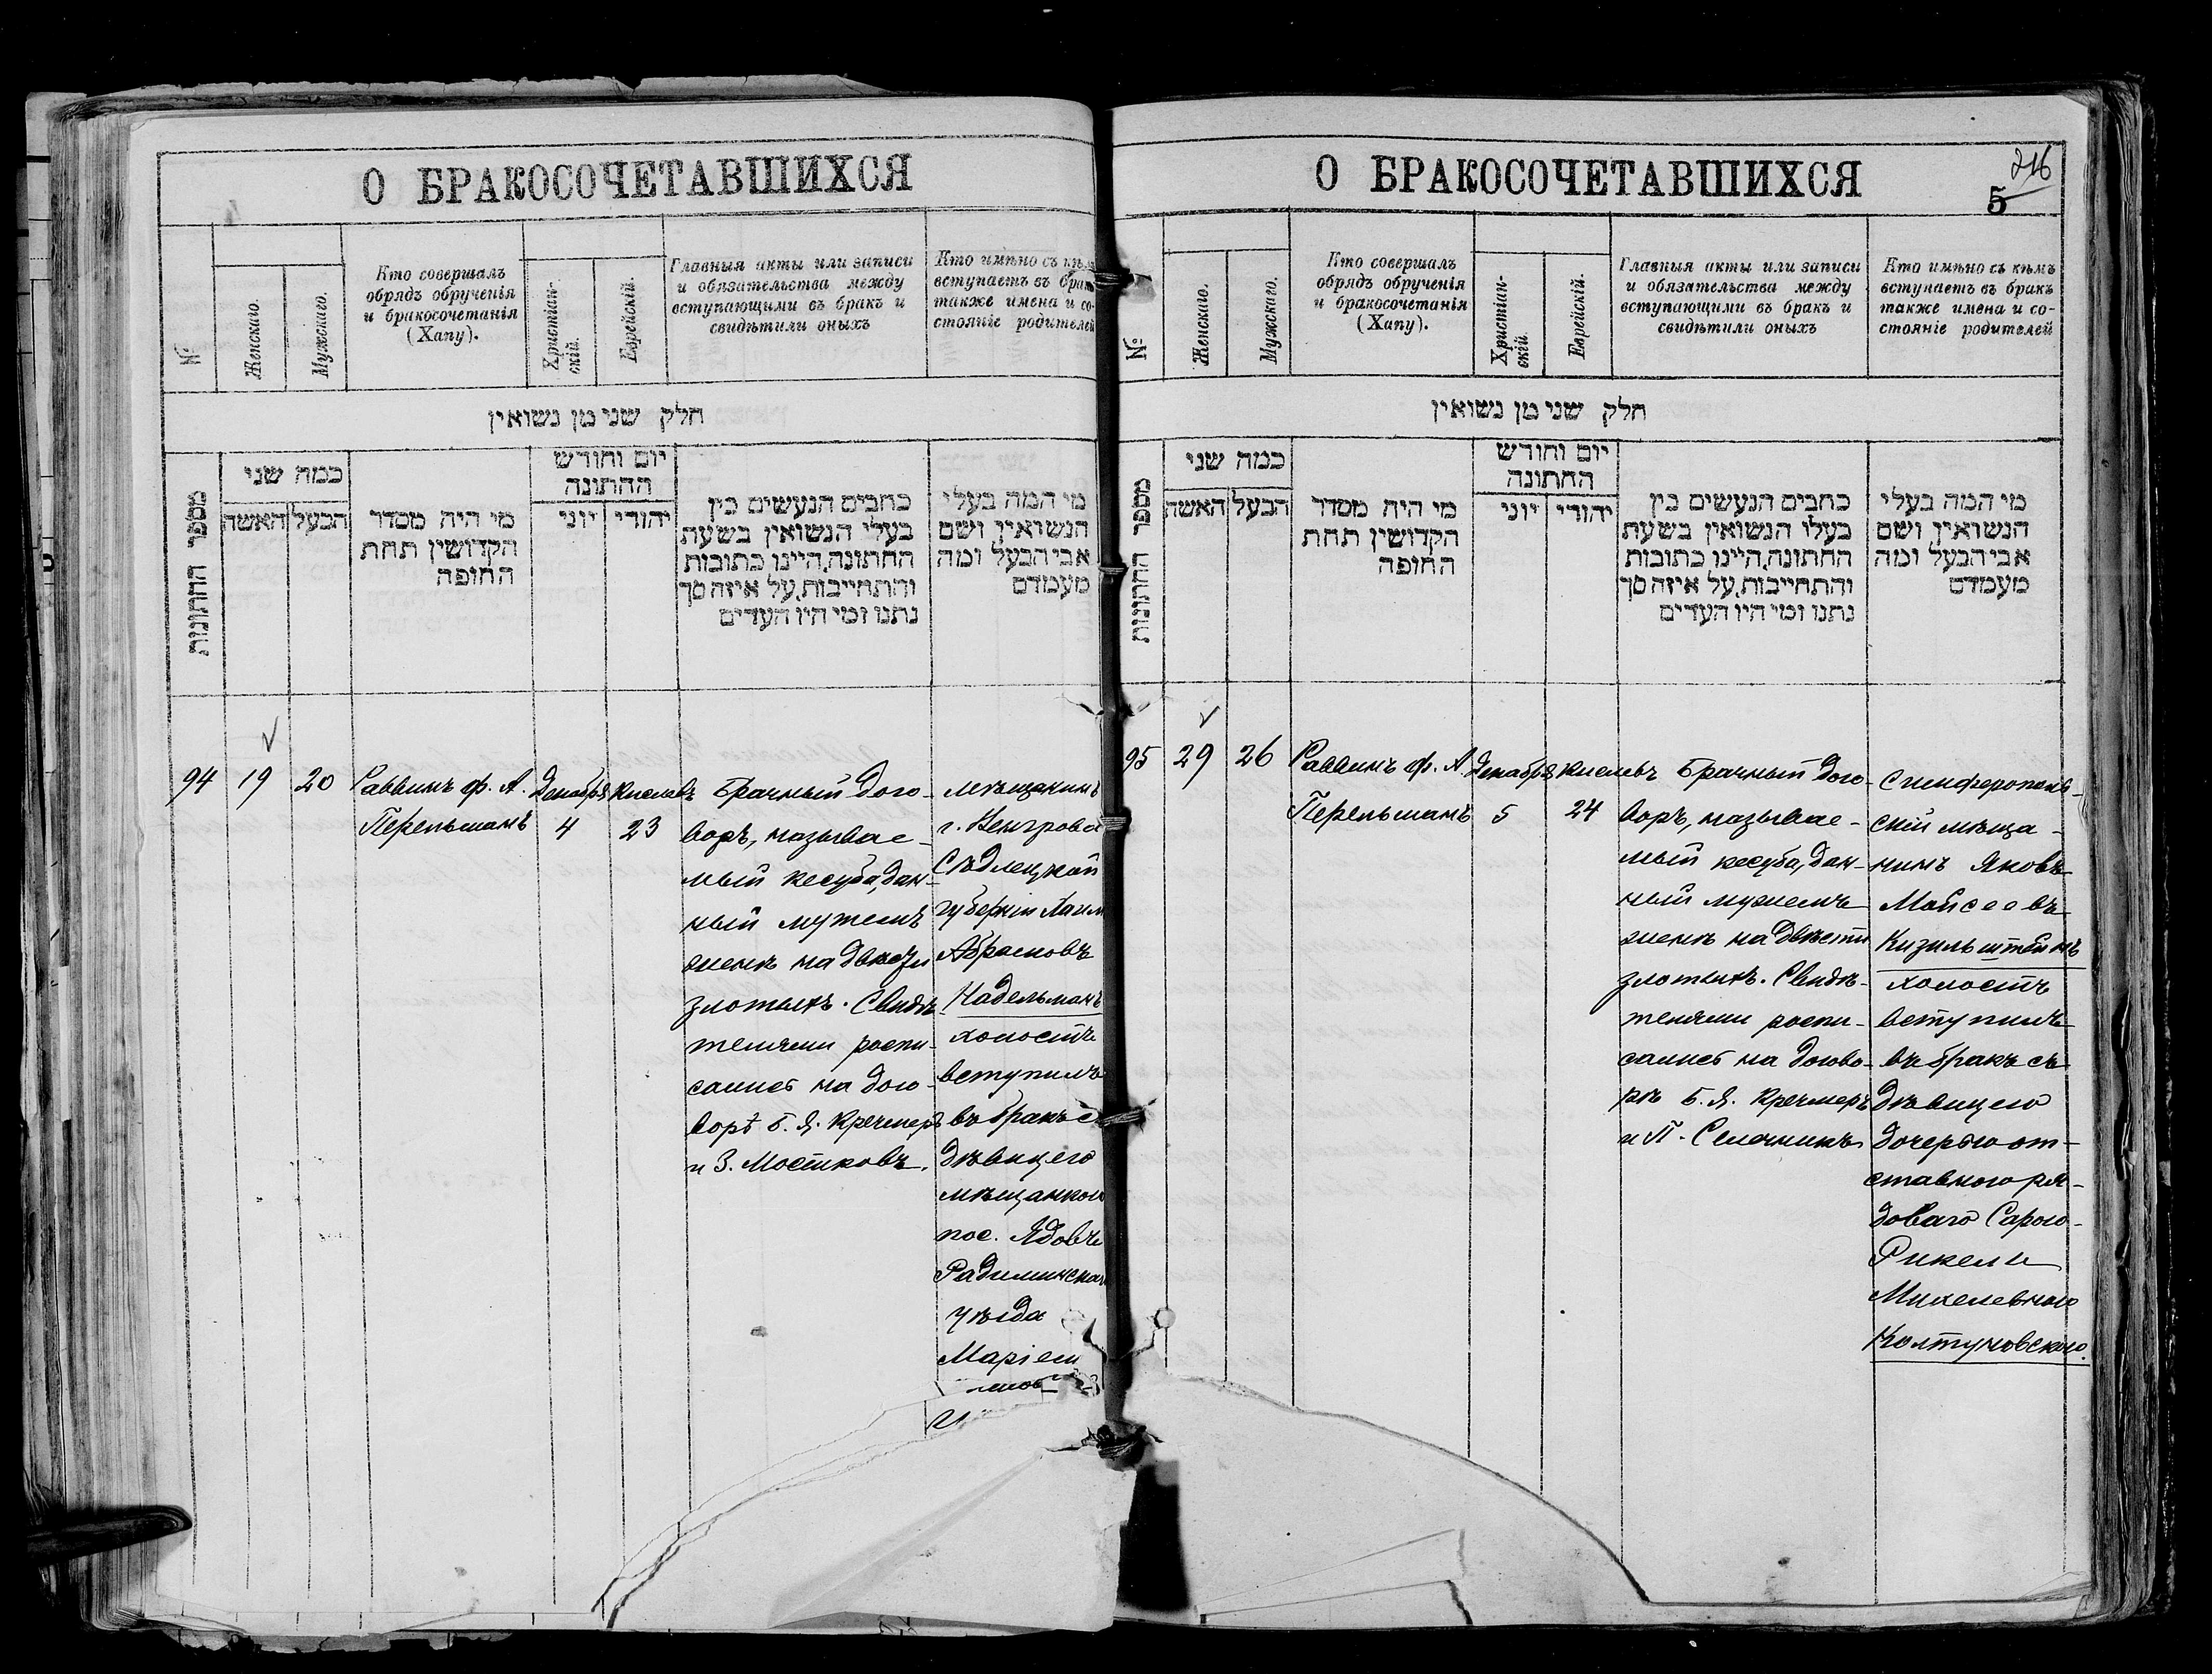 О БРАКОСОЧЕТАВШИХСЯ
№
Женскаго.
Мужскаго.
Кто совершалъ
обрядъ обрученія
и бракосочетанія
(Хапу).
Христіан-
скій.
Еврейскій.
Главныя акты или записи
и обязательства между
вступающими въ бракъ и
свидѣтили оныхъ
Кто имѣно съ кѣмъ
вступаетъ въ бракъ
также имена и со-
стояніе родителей
חלק שני מן נשואין
מספר החתונות
כמה שני
האשה
הבעל
מי היה מסדר
הקדושין תחת
החופה
יום וחודש
החתונה
יוני
יהודי
כתבים הנעשים בין
בעלי הנשואין בשעת
החתונה, היינו כתובות
והתחייבות, על איזה סך
נתנו ומי היו העדים
מי המה בעלי
הנשואין, ושם
אבי הבעל ומה
מעמדם
94
19
20
Раввинъ ф. А.
Перельманъ
Декабря
4
Кислевъ
23
Брачный дого-
воръ, называе-
мый кесуба, дан-
ный мужемъ
женѣ на двѣсти
злотыхъ. Свидѣ-
телями роспи-
сались на дого-
ворѣ Б. Я. Кречмеръ
и З. Мостковъ.
Мѣщанинъ
г. Венгрова
Сѣдлецкой
губерніи Хаим
Абрамовъ
Надельманъ
холостъ
вступилъ
въ бракъ с
дѣвицею
мѣщанкою
пос. Ядовъ
Радиминскаго
уѣзда
Маріем
О БРАКОСОЧЕТАВШИХСЯ
216
5
№
Женскаго.
Мужскаго.
Кто совершалъ
обрядъ обрученія
и бракосочетанія
(Хапу).
Христіан-
скій.
Еврейскій.
Главныя акты или записи
и обязательства между
вступающими въ бракъ и
свидѣтили оныхъ
Кто имѣно съ кѣмъ
вступаетъ въ бракъ
также имена и со-
стояніе родителей
חלק שני מן נשואין
מספר החתונות
כמה שני
האשה
הבעל
מי היה מסדר
הקדושין תחת
החופה
יום וחודש
החתונה
יוני
יהודי
כתבים הנעשים בין
בעלו הנשואין בשעת
החתונה, היינו כתובות
והתחייבות, על איזה סך
נתנו ומי היו העדים
מי המה בעלי
הנשואין, ושם
אבי הבעל ומה
מעמדם
95
29
26
Раввинъ ф. А.
Перельманъ
Декабря
5
Кислевъ
24
Брачный дого-
воръ, называе-
мый кесуба, дан-
ный мужемъ
женѣ на двѣсти
злотыхъ. Свидѣ-
телями роспи-
сались на догово-
рѣ Б. Я. Кречмеръ
и П. Селечникъ
Симферополь-
скій мѣща-
нинъ Яковъ
Мойсеевъ
Кизильштейнъ
холостъ
вступилъ
въ бракъ съ
дѣвицею
дочерью от-
ставного ря-
доваго Сарою-
Рикели
Михелевною
Колтуновскою.